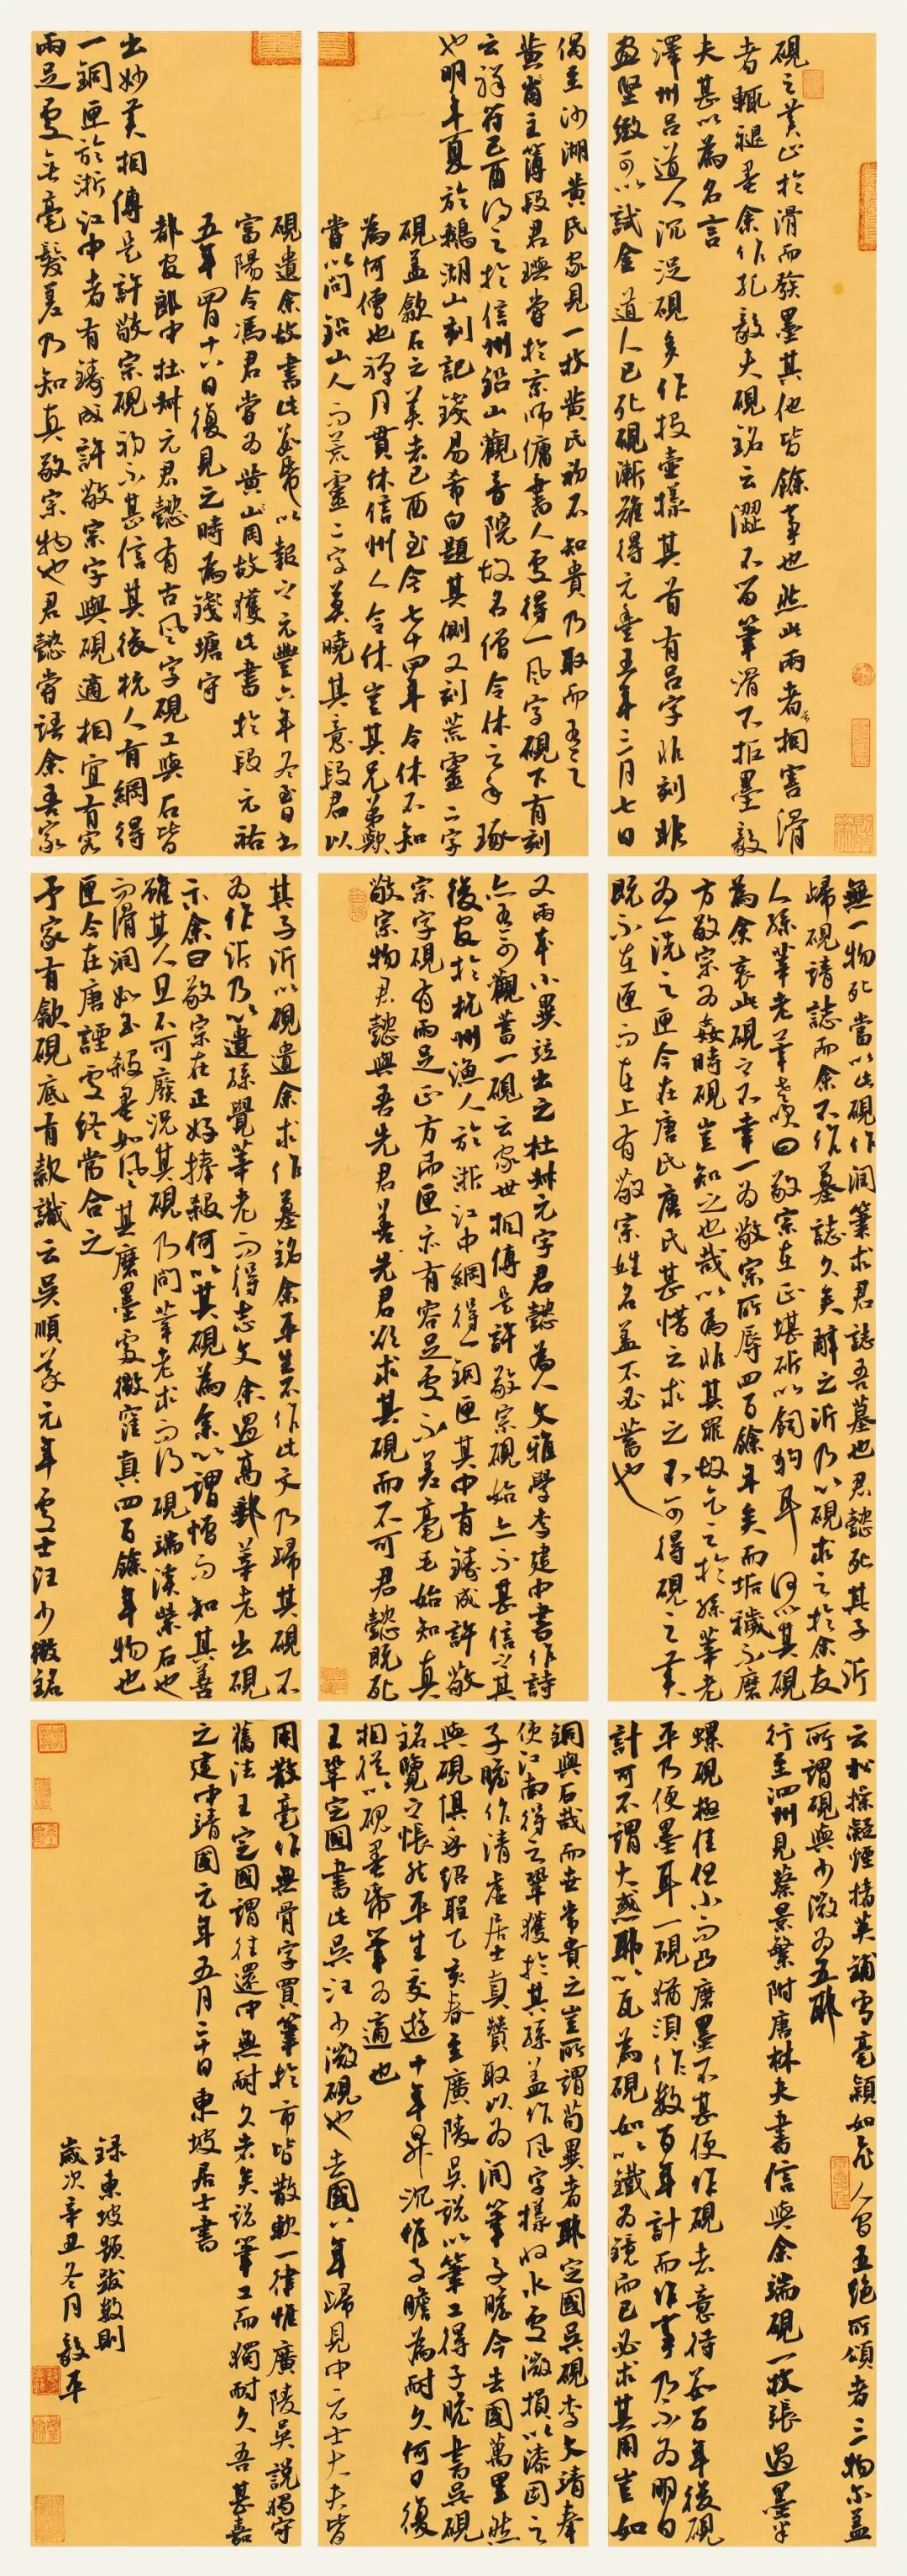 砚之美止於滑而發墨其他皆餘事也然此兩者相害滑
者輒褪墨余作孔毅夫硯銘云澀不留筆滑不拒墨毅
夫甚以為名言
澤州呂道人沉泥硯多作投壺樣其首有呂字非刻非
畫堅緻可以試金道人已死硯漸難得元豐五年三月七日
偶至沙湖黃氏家見一枚黃氏初不知貴乃取而有之
黃崗主簿段君璵嘗於京師傭書人處得一風字硯下有刻
云祥符己酉得之於信州鉛山觀音院故名僧令休之手琢
也明年夏於鵝湖山刻記錢易希白題其側又刻荒靈二字
硯蓋歙石之美者己酉至今七十四年令休不知
為何僧也禪月貫休信州人令休豈其兄弟歟
嘗以問鉛山人而荒靈二字莫曉其意段君以
硯遺余故書此數紙以報之元豐六年冬至日書
富陽令馮君嘗為黃岡故獲此書於段元祐
五年四月十六日復見之時為錢塘守
都官郎中杜叔元君懿有古風字硯工與石皆
出妙美相傳是許敬宗硯初不甚信其後杭人有網得
一銅匣於浙江中者有鑄成許敬宗字與硯適相宜有容
兩足處無毫髮差乃知真敬宗物也君懿嘗語余吾家
無一物死當以此硯作潤筆求君誌吾墓也君懿死其子沂
歸硯請誌而余不作墓誌久矣辭之沂乃以硯求之於余友
人孫莘老莘老笑曰敬宗在正堪斫以飼狗耳何以其硯
為余哀此硯之不幸一為敬宗所辱四百餘年矣而垢穢不磨
方敬宗為姦時硯豈知之也哉以為非其罪故乞之於孫莘老
為一洗之匣今在唐氏唐氏甚惜之求之不可得硯之美
既不在匣而在上有敬宗姓名蓋不必蓄也
又兩本小異竝出之杜叔元字君懿為人文雅學李建中書作詩
亦有可觀蓄一硯云家世相傳是許敬宗硯始亦不甚信之其
後官於杭州漁人於浙江中網得一銅匣其中有鑄成許敬
宗字硯有兩足正方而匣亦有容足處不差毫毛始知真
敬宗物君懿與吾先君善先君欲求其硯而不可君懿既死
其子沂以硯遺余求作墓銘余平生不作此文乃歸其硯不
為作沂乃以遺孫覺莘老而得志文余過高郵莘老出硯
示余曰敬宗在正好棒殺何以其硯為余以謂憎而知其善
雖其人且不可廢況其硯乃問莘老求而得硯端溪紫石也
而滑潤如玉殺墨如風其磨墨處微窪真四百餘年物也
匣今在唐諲處終當合之
予家有歙硯底有款識云吳順義元年處士汪少微銘
云松操凝煙楮英鋪雪毫穎如飛人間五絕所頌者三物爾蓋
所謂硯與少微為五耶
行至泗州見蔡景繁附唐林夫書信與余端硯一枚張遇墨半
螺硯極佳但小而凸磨墨不甚便作硯者意待數百年後硯
平乃便墨耳一硯猶須作數百年計而作事乃不為明日
計可不謂大惑耶以瓦為硯如以鐵為鏡而已必求其用豈如
銅與石哉而世常貴之豈所謂苟異者耶定國吳硯李文靖奉
使江南得之鞏獲於其孫蓋作風字樣收水處微損以漆固之
子瞻作清虛居士真贊取以為潤筆子瞻今去國萬里然
與硯俱乎紹聖乙亥春至廣陵吳說以筆工得子瞻書吳硯
銘覽之悵然平生交遊十年昇沉惟子瞻為耐久何日復
相從以硯墨紙筆為適也
王鞏定國書此吳汪少微硯也 去國八年歸見中元士大夫皆
用散毫作無骨字買筆於市皆散軟一律惟廣陵吳說獨守
舊法王定國謂往還中無耐久者矣說筆工而獨耐久吾甚嘉
之建中靖國元年五月二十日東坡居士書
録東坡題跋數則
歲次辛丑冬月 毅平